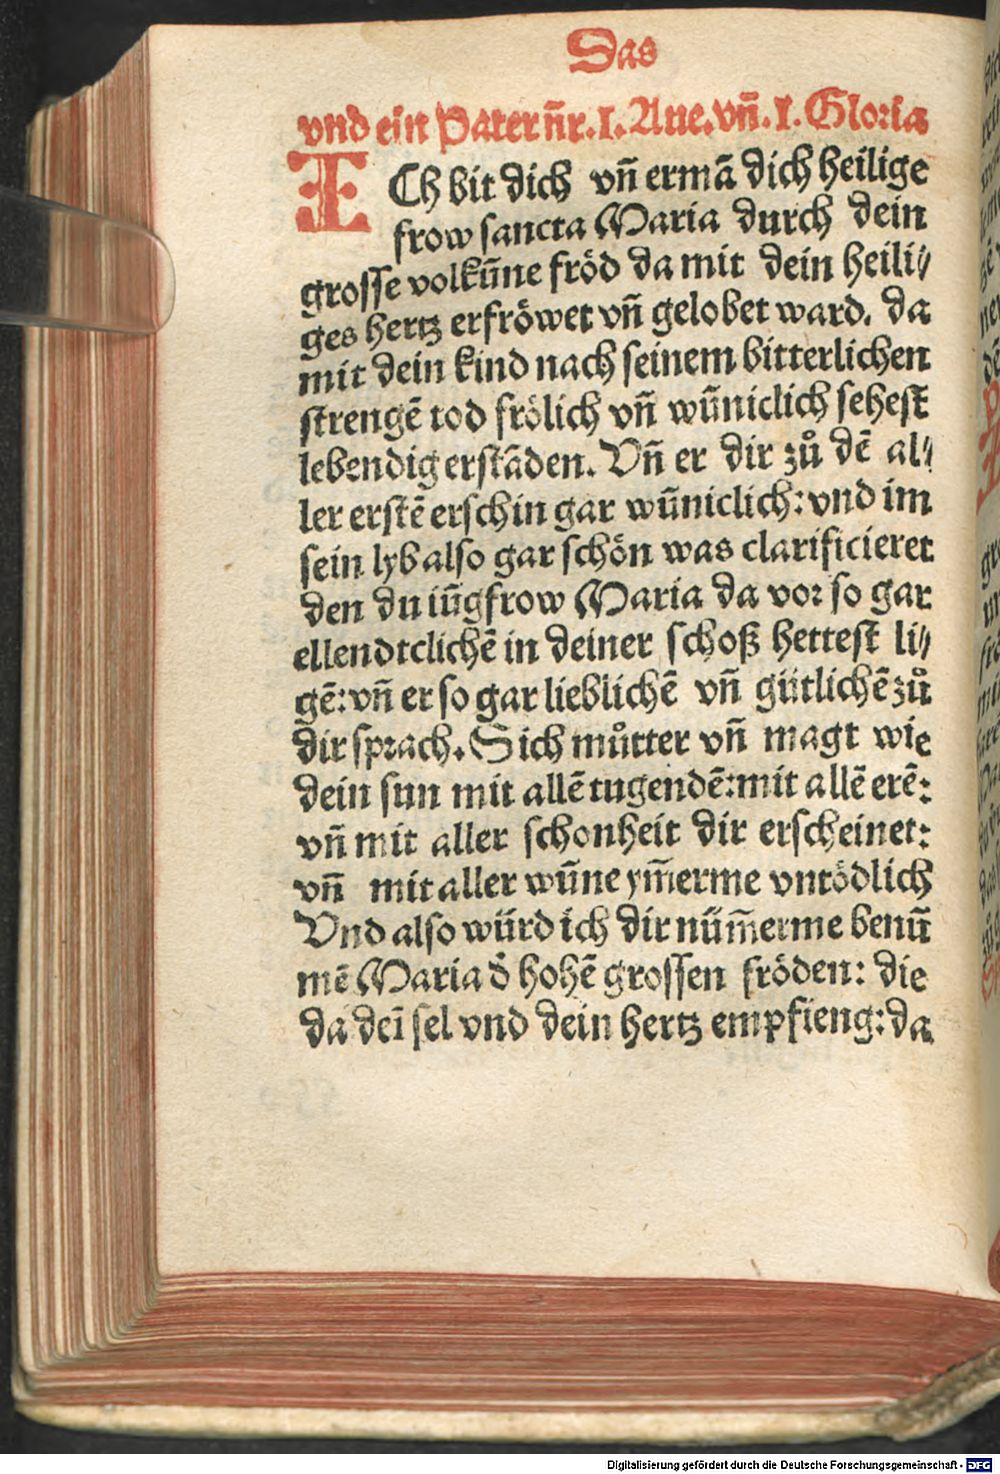 Das
vnd ein Pater nr̄. I. Aue. vñ. I. Gloria
ICh bit dich vñ ermā dich heilige
frow sancta Maria durch dein
grosse volkūne fröd da mit dein heili⸗
ges hertz erfröwet vñ gelobet ward. da
mit dein kind nach seinem bitterlichen
strengē tod frölich vñ wūniclich sehest
lebendig erstāden. Vñ er dir zů dē al⸗
ler erstē erschin gar wūniclich: vnd im
sein lyb also gar schön was clarificieret
den du iūgfrow Maria da vor so gar
ellendtclichē in deiner schoß hettest li⸗
gē: vñ er so gar lieblichē vñ gütlichē zů
dir sprach. Sich můtter vñ magt wie
dein sun mit allē tugendē: mit allē erē:
vñ mit aller schonheit dir erscheinet:
vñ mit aller wūne ym̄erme vntödlich
Vnd also würd ich dir nüm̄erme benū
mē Maria d̄ hohē grossen fröden: die
da deī sel vnd dein hertz empfieng: da
Digitalisierung gefördert durch die Deutsche Forschungsgemeinschaft - DFG